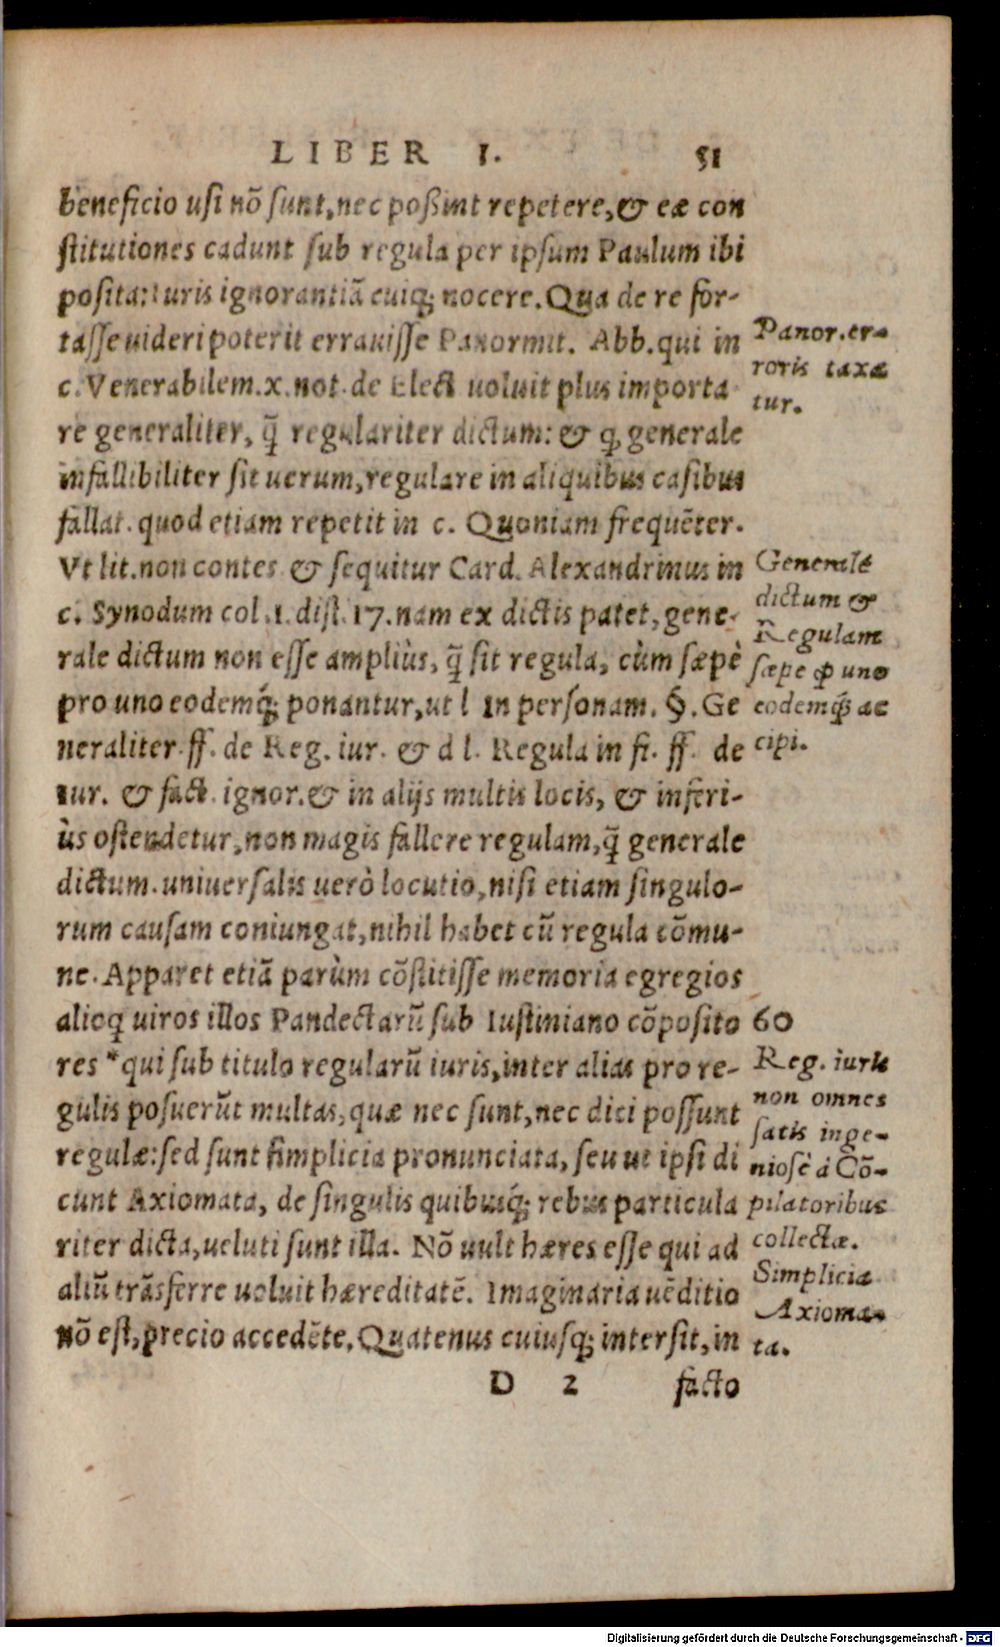 LIBER I. 51
beneficio usi nõ sunt, nec poßint repetere, & eæ con
stitutiones cadunt sub regula per ipsum Paulum ibi
posita: Iuris ignorantiã cuiq; nocere. Qua de re for-
tasse uideri poterit errauisse Panormit. Abb. qui in
c. Venerabilem. x. not. de Elect uoluit plus importa
re generaliter, q̃ regulariter dictum: & ꝙ generale
infallibiliter sit uerum, regulare in aliquibus casibus
fallat. quod etiam repetit in c. Quoniam frequẽter.
Vt lit. non contes & sequitur Card. Alexandrinus in
c. Synodum col. 1. dist. 17. nam ex dictis patet, gene-
rale dictum non esse ampliùs, q̃ sit regula, cùm sæpè
pro uno eodemq́; ponantur, ut l In personam. §. Ge
neraliter. ff. de Reg. iur. & d l. Regula in fi. ff. de
iur. & fact. ignor. & in alijs multis locis, & inferi-
ùs ostendetur, non magis fallere regulam, q̃ generale
dictum. uniuersalis uerò locutio, nisi etiam singulo-
rum causam coniungat, nihil habet cũ regula cõmu-
ne. Apparet etiã parùm cõstitisse memoria egregios
alioq uiros illos Pandectarũ sub Iustiniano cõposito
res * qui sub titulo regularũ iuris, inter alias pro re-
gulis posuerũt multas, quæ nec sunt, nec dici possunt
regulæ: sed sunt simplicia pronunciata, seu ut ipsi di
cunt Axiomata, de singulis quibusq́; rebus particula
riter dicta, ueluti sunt illa. Nõ uult hæres esse qui ad
aliũ trãsferre uoluit hæreditatẽ. Imaginaria uẽditio
nõ est, precio accedẽte. Quatenus cuiusq; intersit, in
D 2 facto
Panor. er-
roris taxa
tur.
Generale
dictum &
Regulam
sæpe ꝓ uno
eodemq́; ac
cipi.
60
Reg. iuris
non omnes
satis inge-
niosè à Cõ-
pilatoribus
collectæ.
Simplicia
Axioma-
ta.
Digitalisierung gefördert durch die Deutsche Forschungsgemeinschaft - DFG